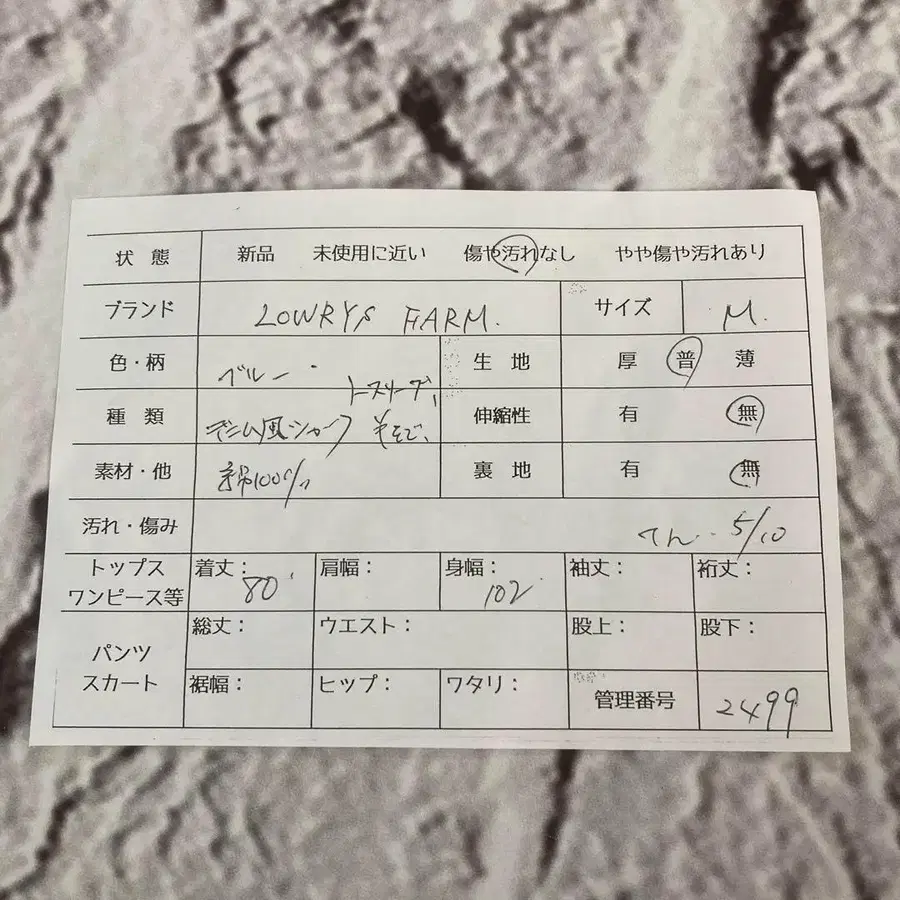 状 態 新品 未使用に近い 傷や汚れなし やや傷や汚れあり
ブランド LOWRYS FARM. サイズ M.
色・柄 ブルー 生 地 厚 普 薄
種 類 デニム風シャツ 半そで、 伸縮性 有 無
素材・他 綿100% 裏 地 有 無
汚れ・傷み てん 5/10
トップス ワンピース等 着丈: 80 肩幅: 身幅: 102 袖丈: 裄丈:
パンツ スカート 総丈: ウエスト: 股上: 股下:
裾幅: ヒップ: ワタリ: 管理番号 2499